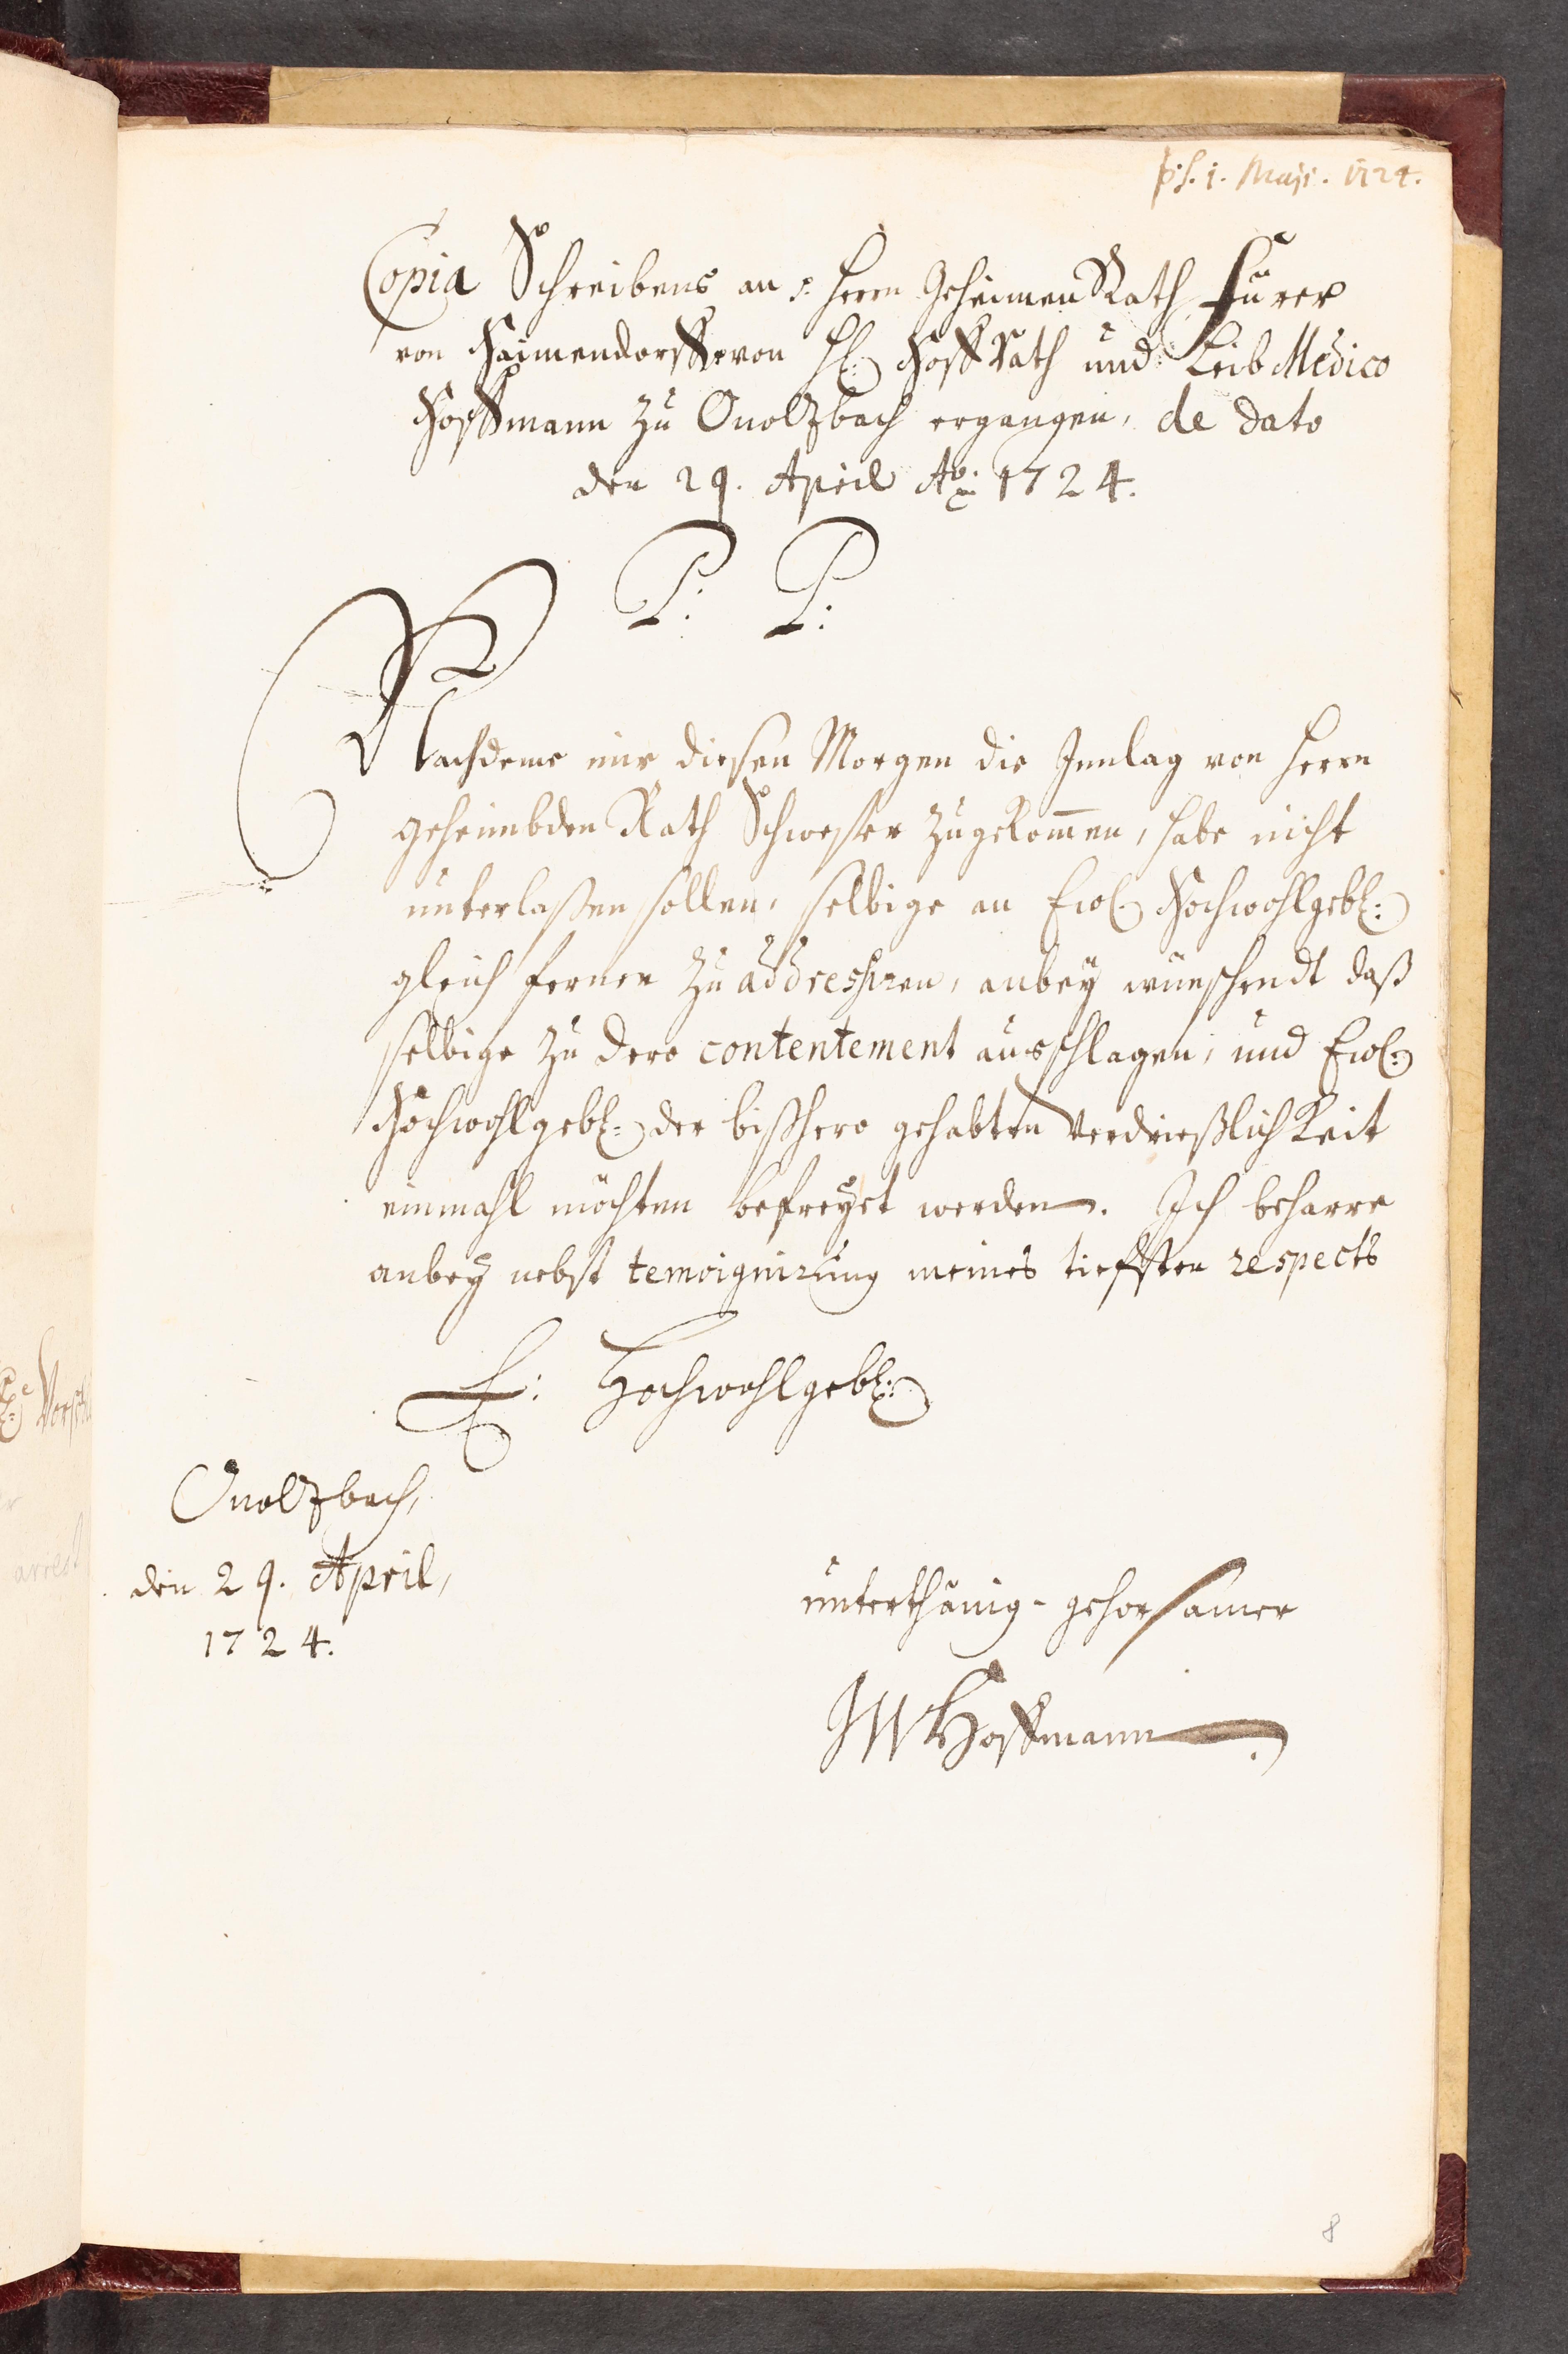 ps. 1. Maji. 1724.
Copia Schreibens an s. Herrn Geheimen Rath Fürer
von Haimendorff von H. HoffRath und Leib Medico
Hoffmann zu Onoltzbach ergangen, de dato
den 29. April Ao: 1724.
P: P:
Nachdeme mir diesen Morgen die Innlag von Herrn
geheimbden Rath Schweser zugekommen, habe nicht
unterlaßen sollen, selbige an Ewl. Hochwohlgebl:
gleich ferner zu addressiren, anbey wünschendt daß
selbige zu dero contentement ausschlagen, und Ewl.
Hochwohlgebl: der bißhero gehabten Verdrießlichkeit
einmahl möchten befreyet werden. Ich beharre
anbey nebst temoignirung meines tieffsten respects
E: Hochwohlgebl:
Onoltzbach,
den 29. April,
1724.
unterthänig-gehorsamer
JWHoffmann.
8